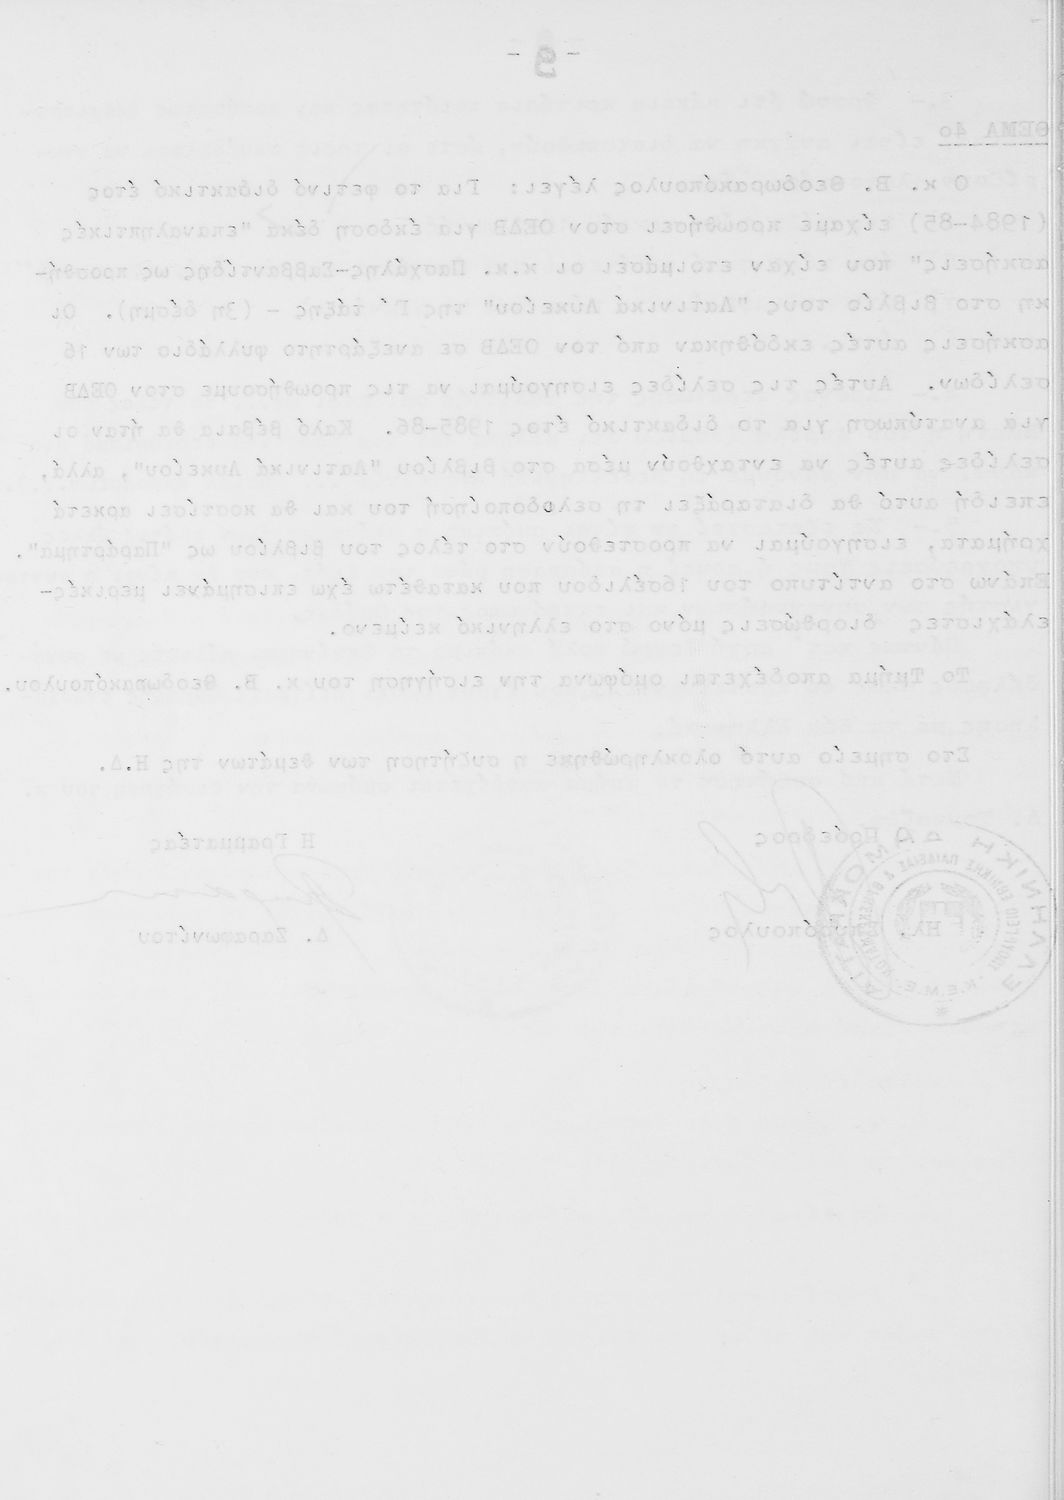 - 9 -
ΘΕΜΑ 4ο
Ο κ. Β. Θεοδωρακόπουλος λέγει: Για το φετινό διδακτικό έτος
(1984-85) είχαμε προωθήσει στον ΟΕΔΒ για έκδοση δέκα "επαναληπτικές
ασκήσεις" που είχαν ετοιμάσει οι κ.κ. Πασχάλης-Σαββαντίδης ως προσθή-
κη στο βιβλίο τους "Λατινικά Λυκείου" της Γ΄ τάξης - (3η δέσμη). Οι
ασκήσεις αυτές εκδόθηκαν από τον ΟΕΔΒ σε ανεξάρτητο φυλλάδιο των 16
σελίδων. Αυτές τις σελίδες εισηγούμαι να τις προωθήσουμε στον ΟΕΔΒ
για ανατύπωση για το διδακτικό έτος 1985-86. Καλό βέβαια θα ήταν οι
σελίδες αυτές να ενταχθούν μέσα στο βιβλίου "Λατινικά Λυκείου", αλλά,
επειδή αυτό θα διαταράξει τη σελιδοποίησή του και θα κοστίσει αρκετά
χρήματα, εισηγούμαι να προστεθούν στο τέλος του βιβλίου ως "Παράρτημα".
Επάνω στο αντίτυπο του 16σέλιδου που καταθέτω έχω επισημάνει μερικές-
ελάχιστες διορθώσεις μόνο στο ελληνικό κείμενο.
Το Τμήμα αποδέχεται ομόφωνα την εισήγηση του κ. Β. Θεοδωρακόπουλου.
Στο σημείο αυτό ολοκληρώθηκε η συζήτηση των θεμάτων της Η.Δ.
Ο Πρόεδρος Η Γραμματέας
Ηλ. Σπυρόπουλος Δ. Ζαραφωνίτου
ΕΛΛΗΝΙΚΗ ΔΗΜΟΚΡΑΤΙΑ
Κ.Ε.Μ.Ε.